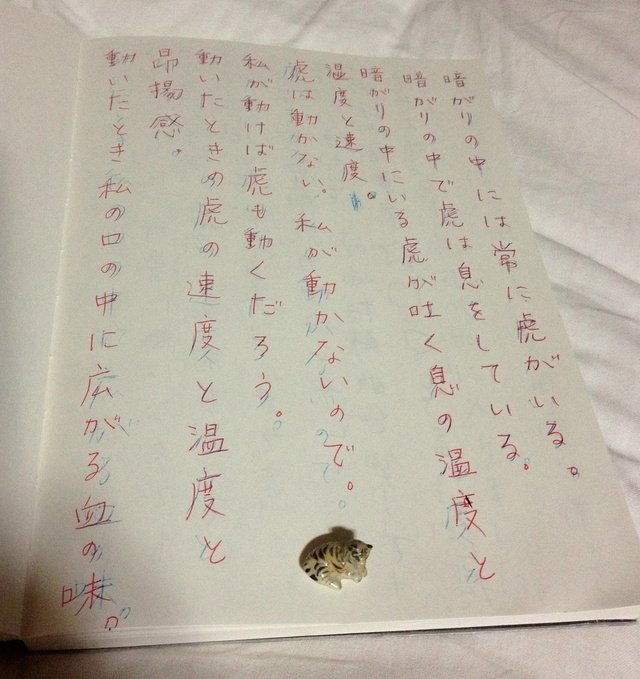 暗がりの中には常に虎がいる。
暗がりの中で虎は息をしている。
暗がりの中にいる虎が吐く息の温度と
温度と速度。
虎は動かない。私が動かないので。
私が動けば虎も動くだろう。
動いたときの虎の速度と温度と
昂揚感。
動いたとき私の口の中に広がる血の味。